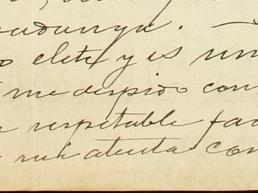 o elite y es un
me despido con
respetable fa
mi atenta con